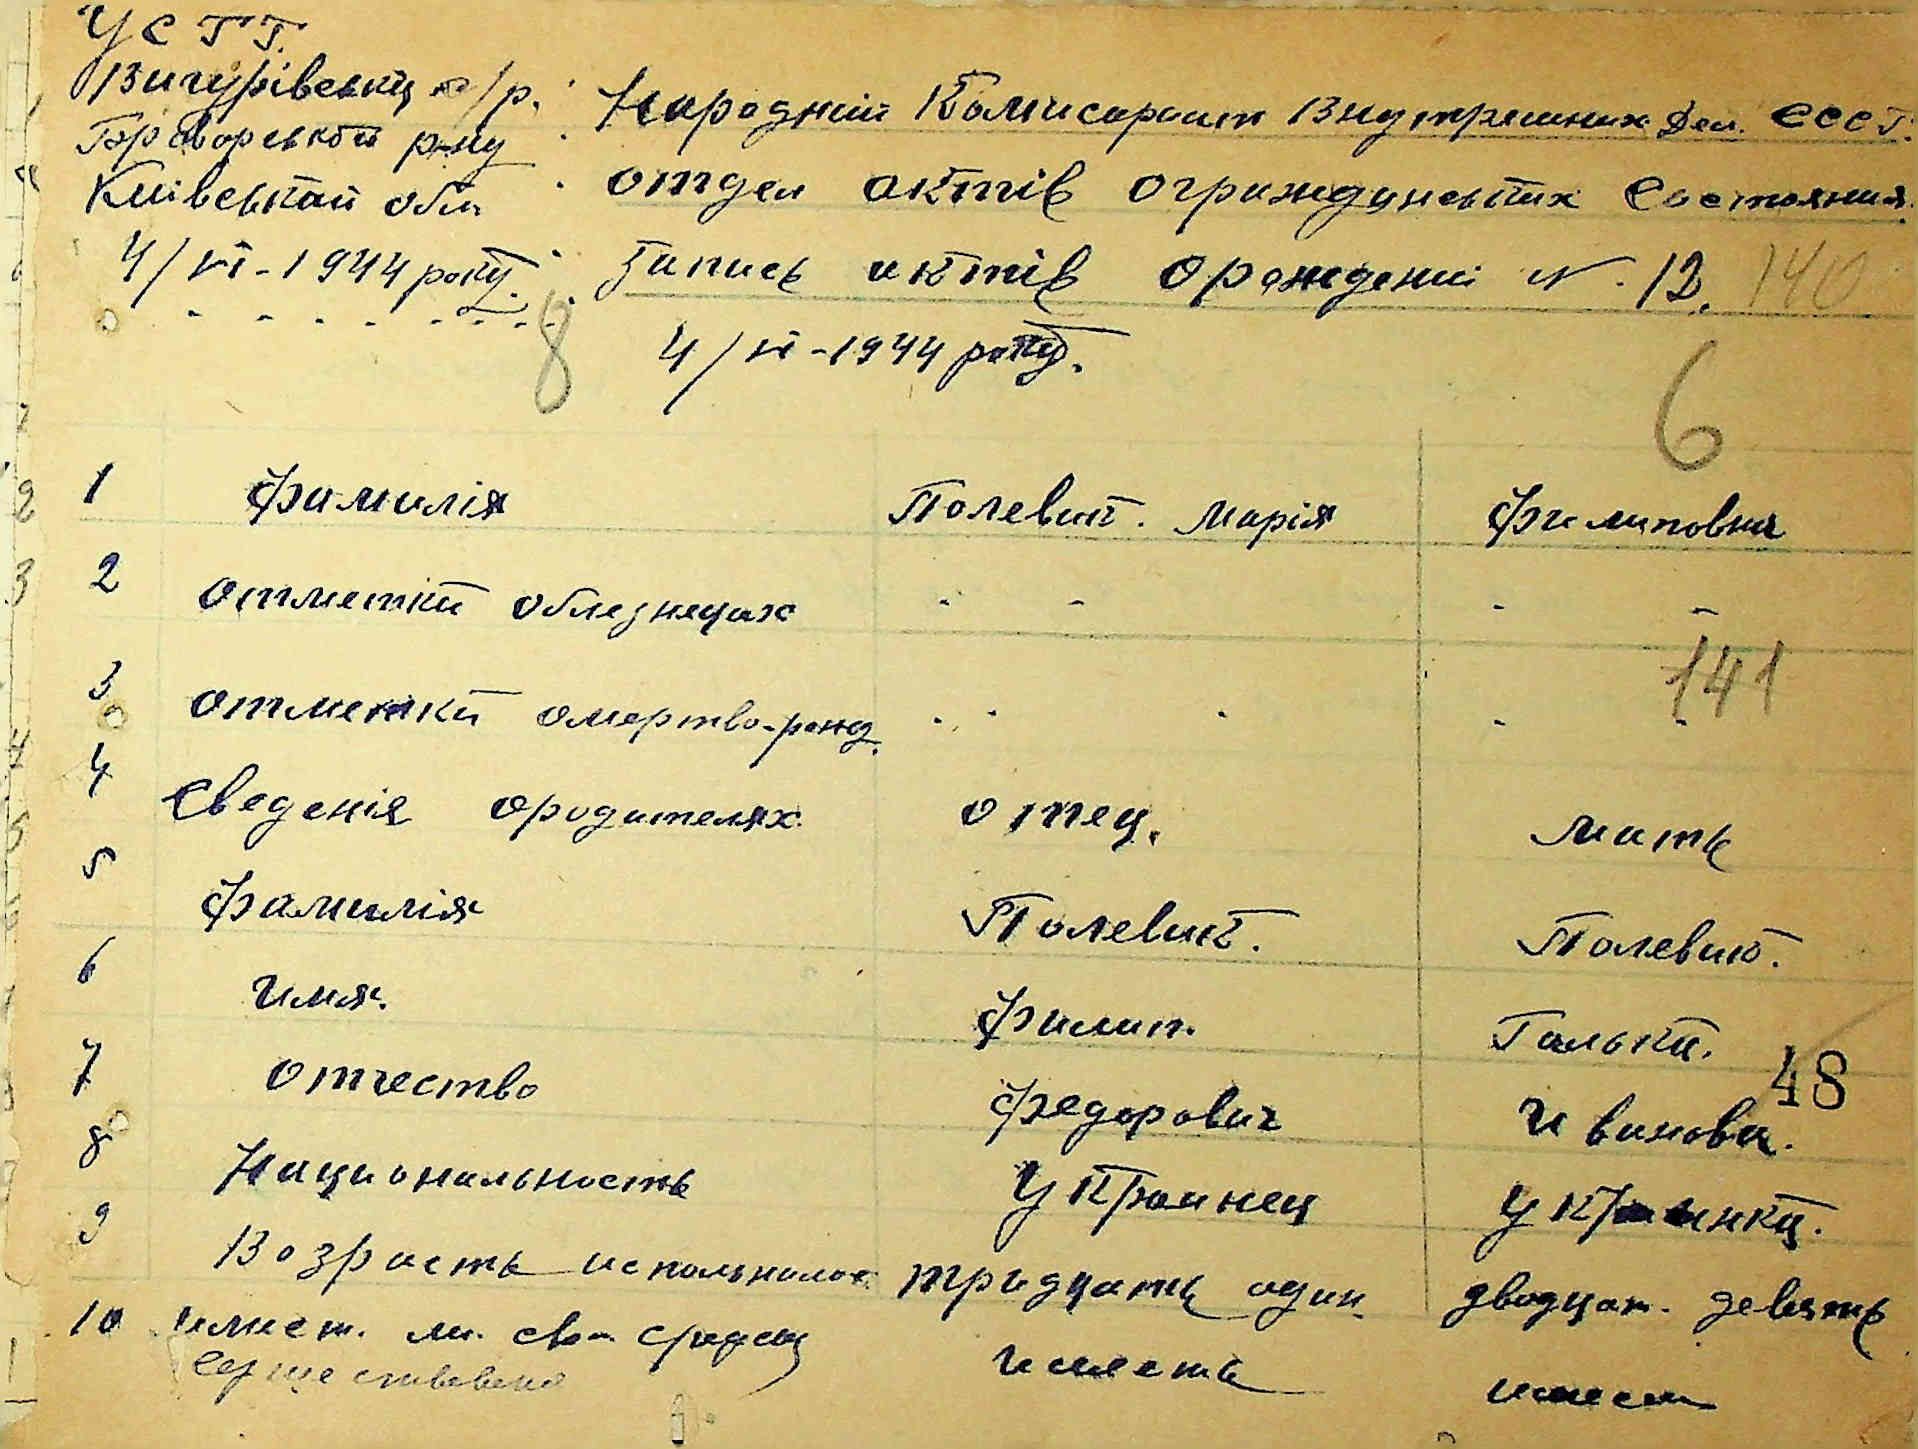 УСТТ.
Вигурівськи с/р.
Броворський р-ну
Київський обл.
4/VI-1944 року.
Народний Комисариат Внутрешних Дел. СССР.
отдел актів огражданьских Состояния.
Запись актів орождениі N. 12. 140
4/VI-1944 року.
8
6
1 Фамилія Полевик. Марія Филиповна
2 отметкй облезнецах - - - -
141
3 отметкй омертво-рожд. - - - - -
4 Сведенія ородителях отец. мать
5 Фамилія Полевик. Полевик.
6 Имя. Филип. Галька.
7 отчество Федорович Иванова.
48
8 Национальность Украинец Украинка.
9 Возрасть тридцать один. двадцат. девять
10 имеет. ли. иметь имеет